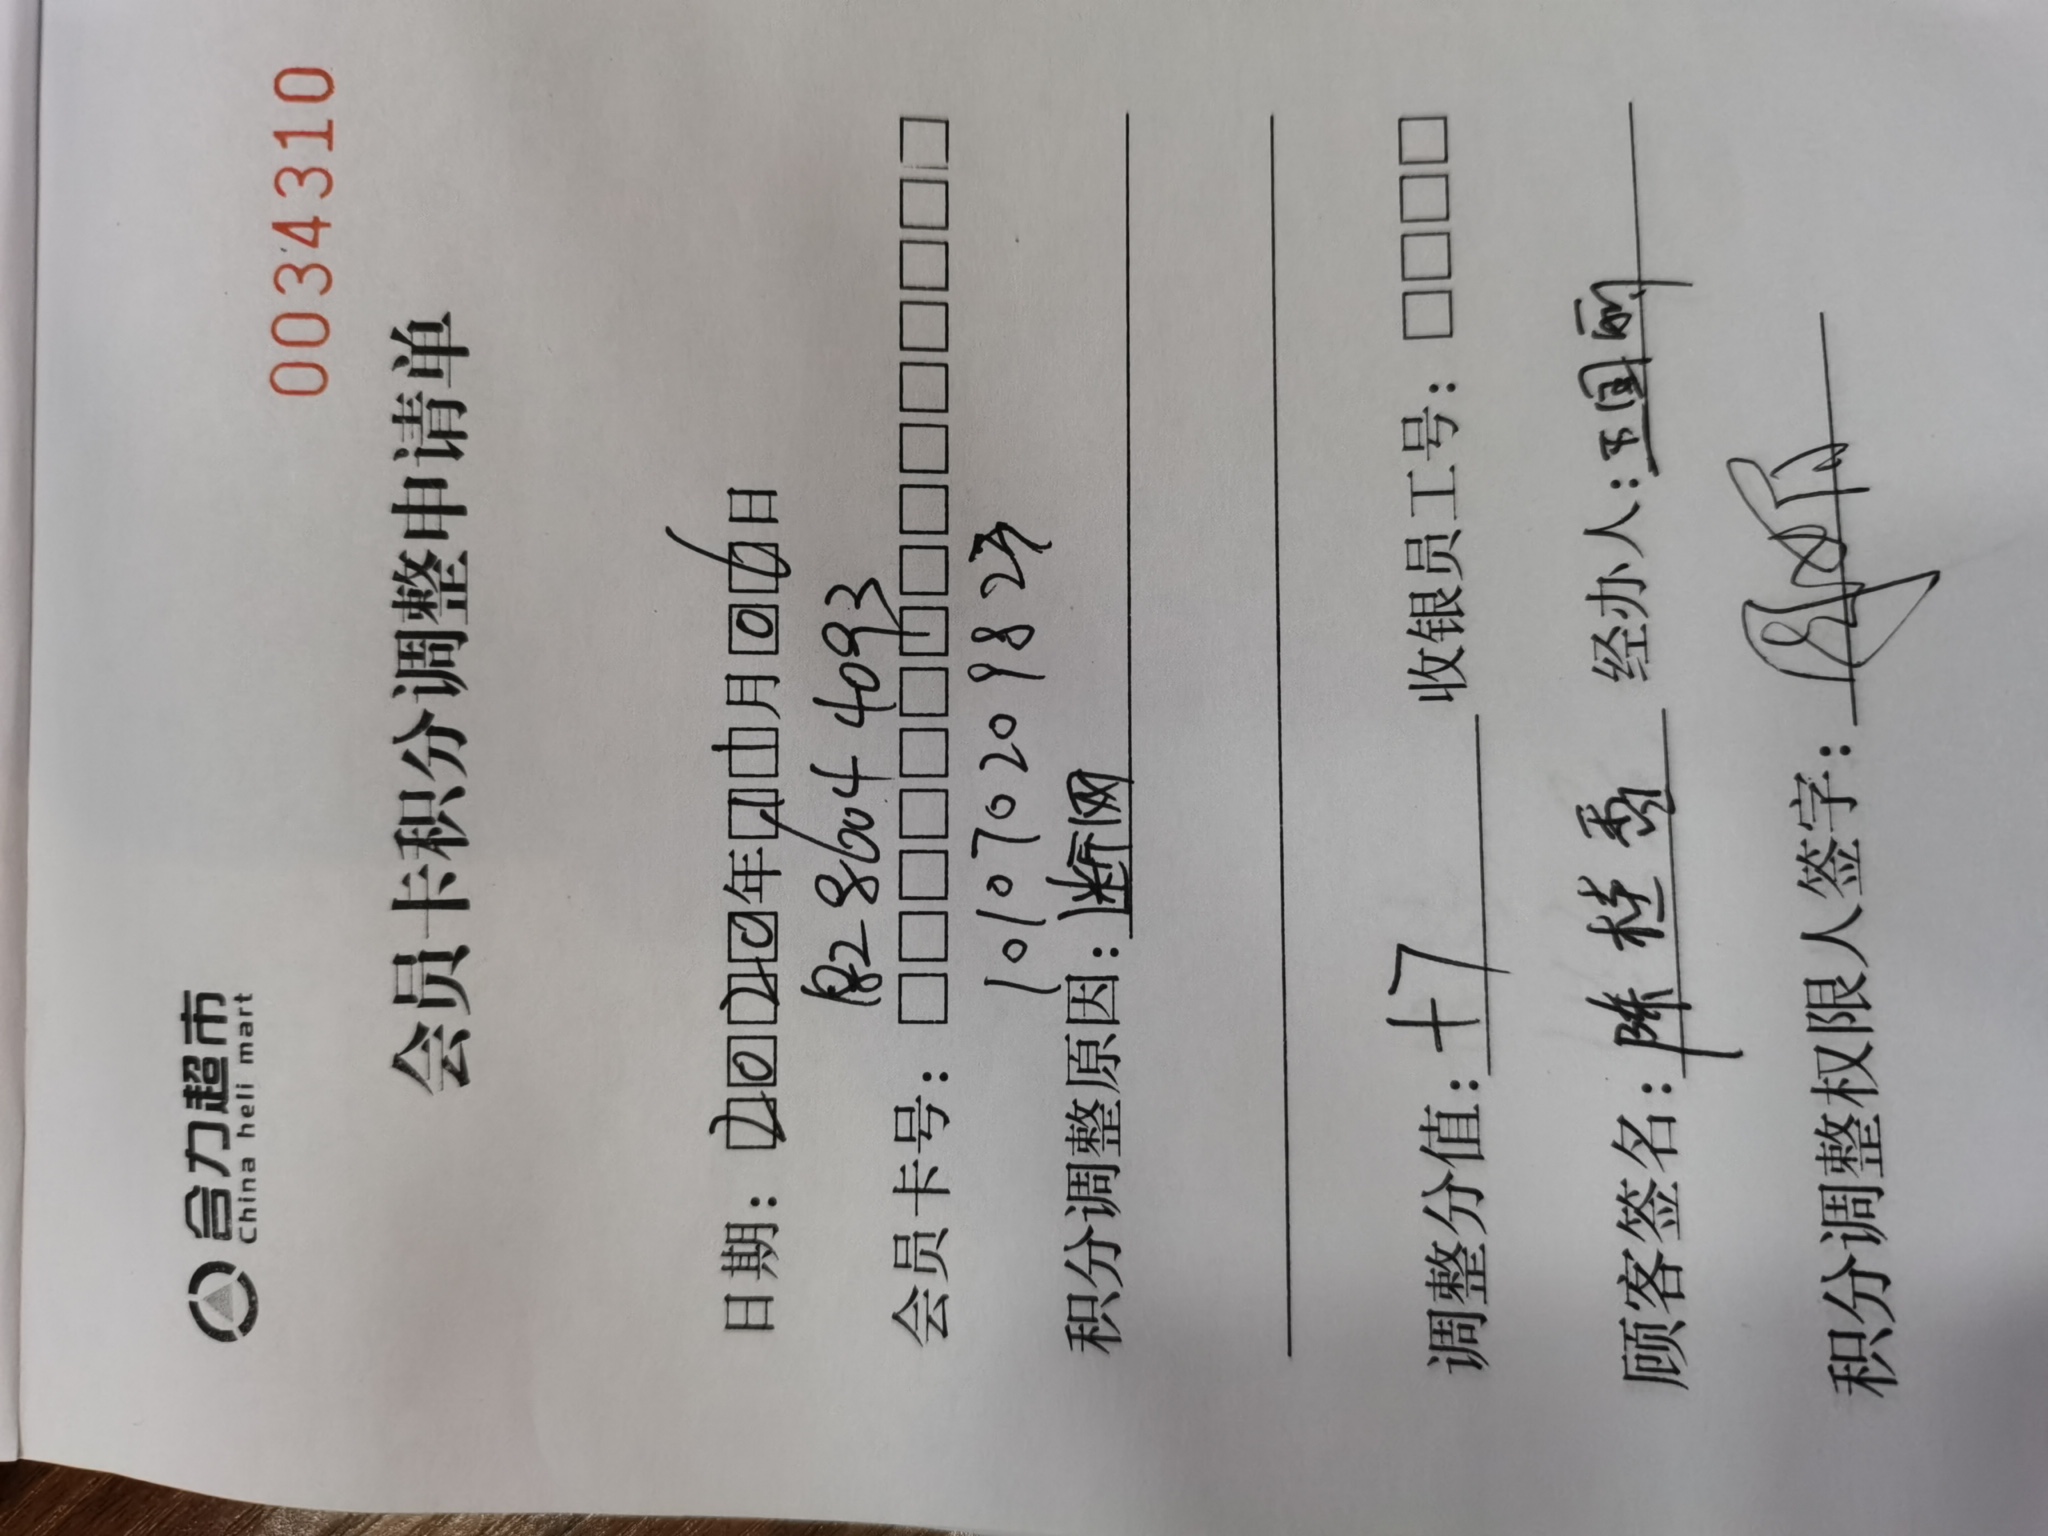 合力超市
China heli mart
0034310
会员卡积分调整申请单
日期：2020年11月06日
18286044093
会员卡号：□□□□□□□□□□□□□□□
1010702098
积分调整原因：断网
调整分值：+7 收银员工号：□□□□
顾客签名：陈桂秀 经办人：王国丽
积分调整权限人签字：